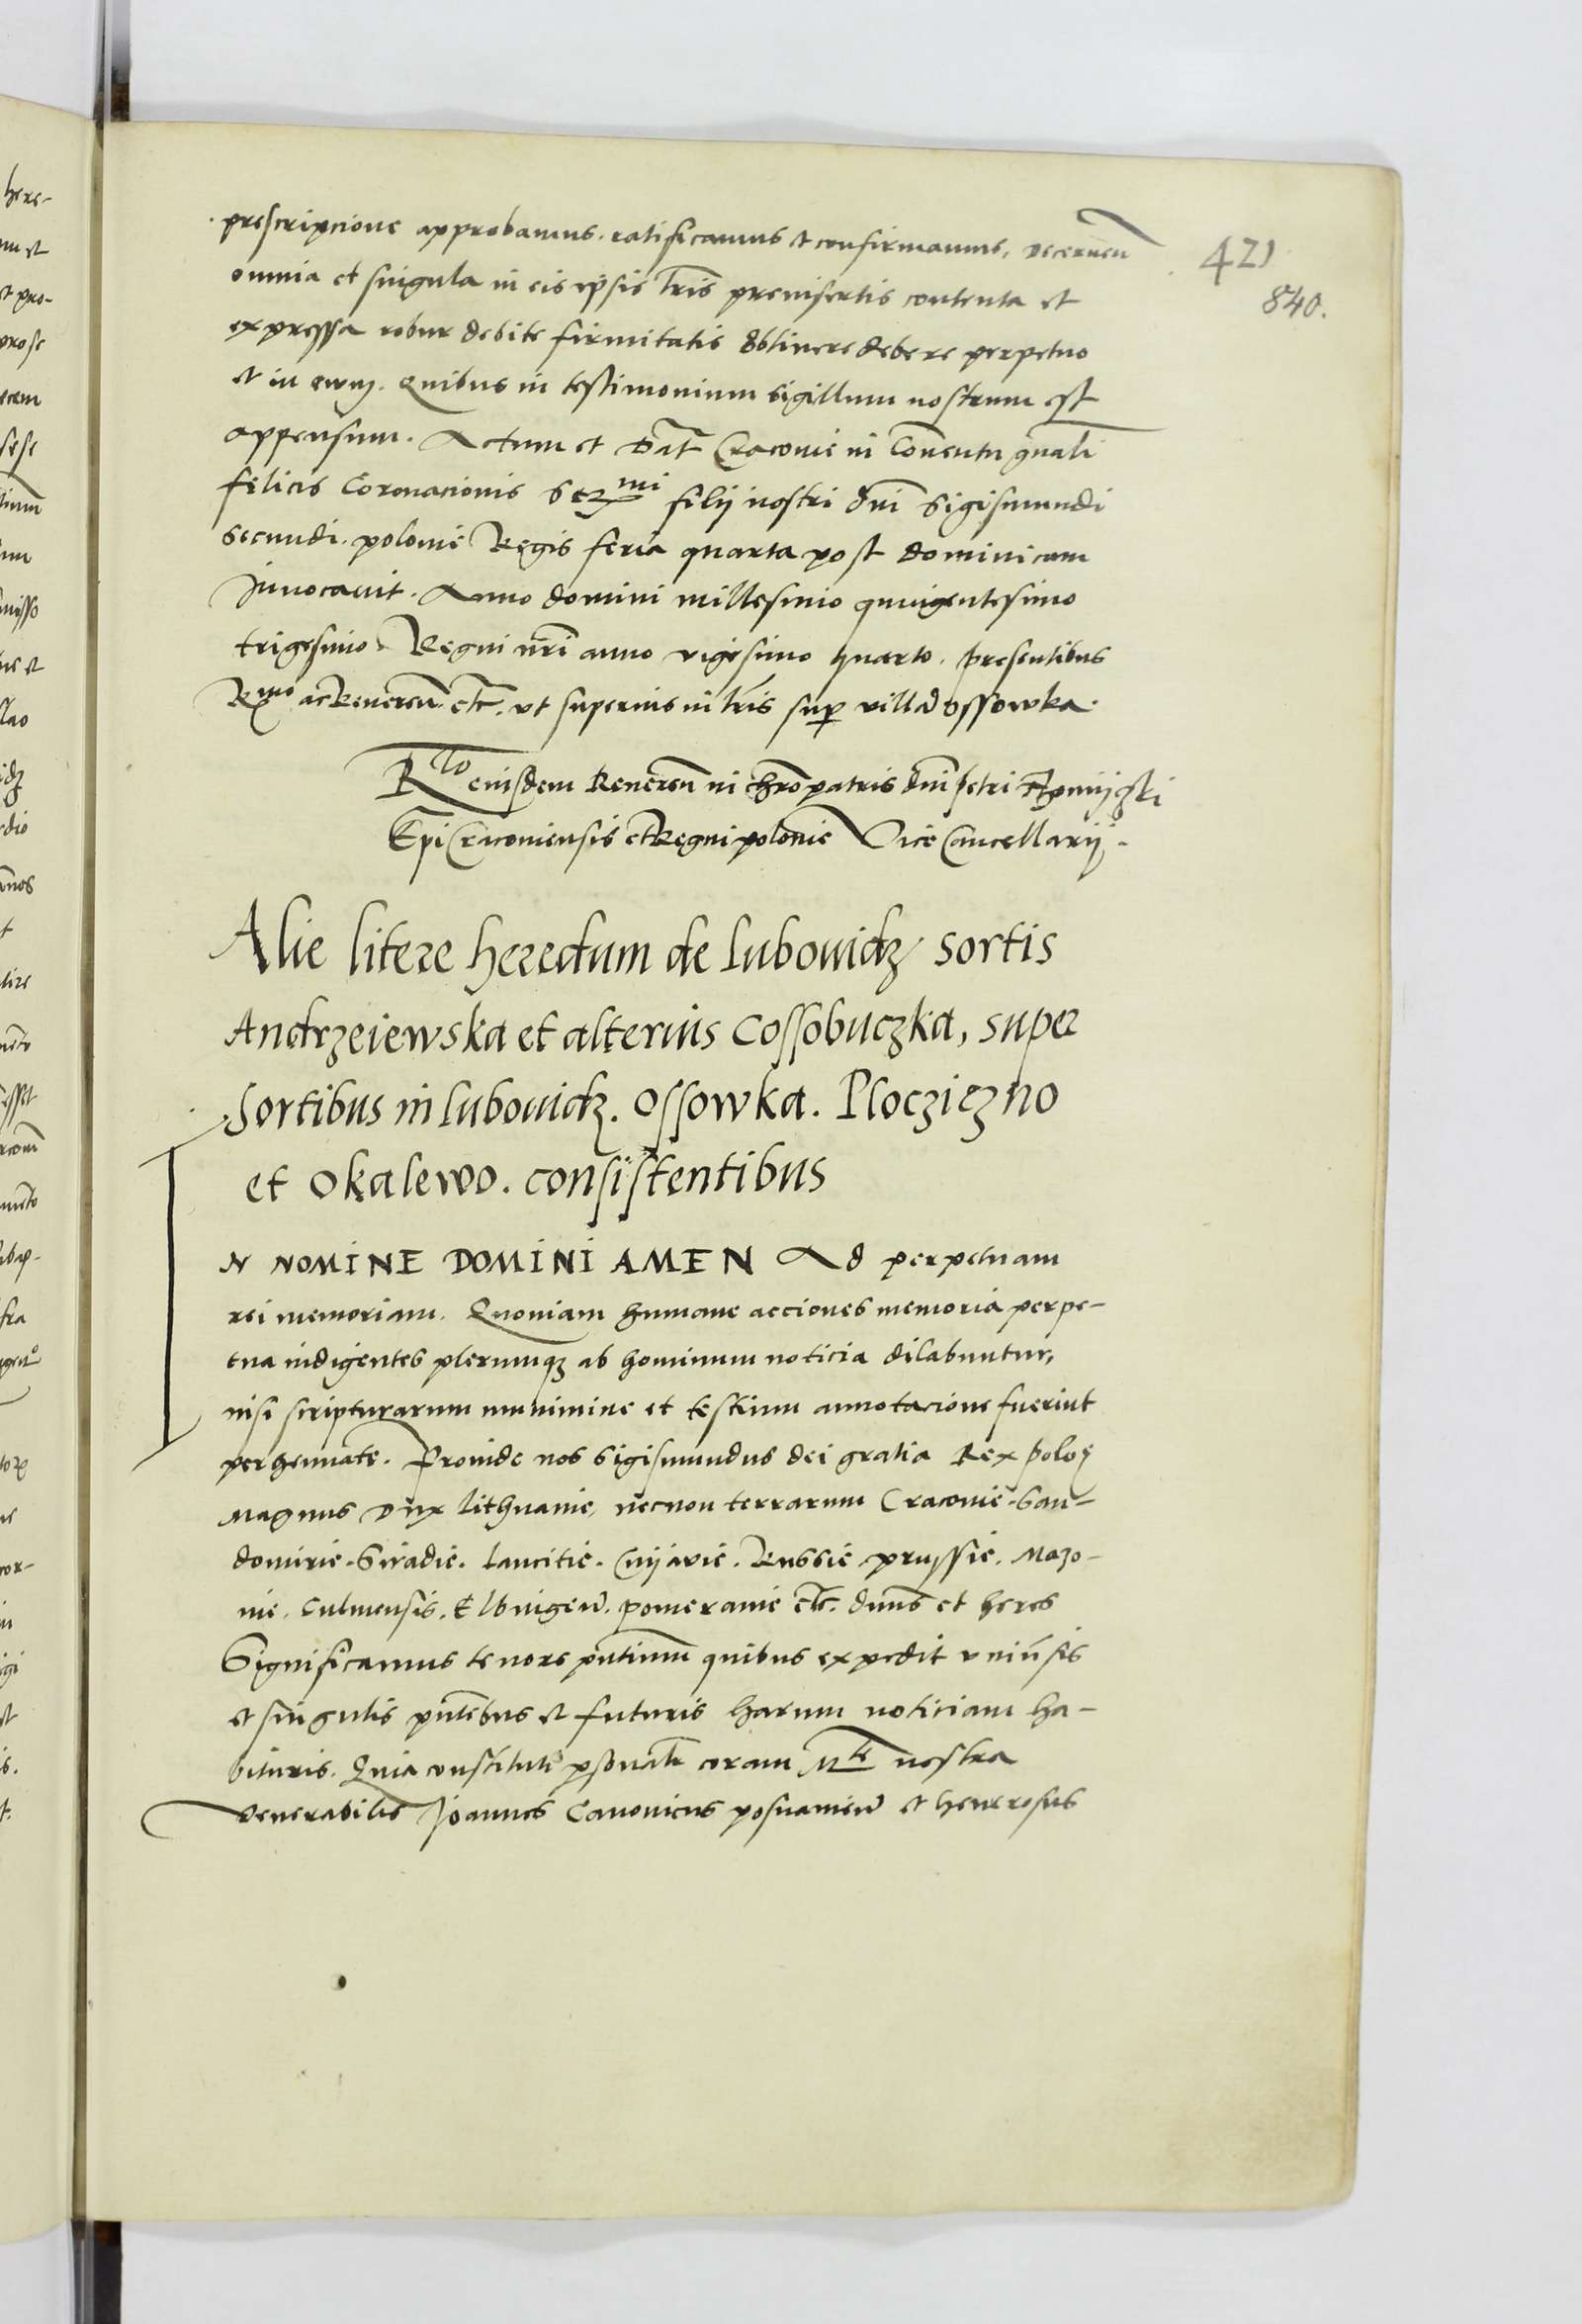 prescripcione approbamus. ratificamus et confirmamus, decernen̄
421
omnia et singula in eis ip̄sis l̄ris preinsertis contenta et
840.
expressa robur debite firmitatis obtinere debere perpetuo
et in ewm. Quibus in testimonium sigillum nostrum est
appensum. Actum et Dat̄ Cracovie in Conventu gn̄ali
felicis Coronacionis Ser^mi filij nostri dn̄i Sigismundi
secundi. polonie Regis feria quarta post dominicam
Invocavit. Anno domini millesimo quingentesimo
trigesimo Regni nr̄i anno vigesimo quarto. presentibus
R^mo ac Reveren̄. etc̄. ut superius in l̄ris sup̄ villa Ossowka.
R^to eiusdem Reveren̄ in chr̄o patris dn̄i Petri Thomijczki
Ep̄i Cracoviensis et Regni polonie Vice Cancellarij.
Alie litere heredum de lubovidz sortis
Andrzeiewska et alterius Cossobuczka, super
Sortibus in lubovidz. Ossowka. Plocziczno
et Okalewo. consistentibus
IN NOMINE DOMINI AMEN Ad perpetuam
rei memoriam. Quoniam humane acciones memoria perpe-
tua indigentes plerumqȝ ab hominum noticia dilabuntur,
nisi scripturarum munimine et testium annotacione fuerint
perhennate. Proinde nos Sigismundus dei gratia Rex Polo
Magnus Dux Lithuanie, necnon terrarum Cracovie. San-
domirie. Siradie. Lancitie. Cuijavie. Russie prussie. Mazo-
vie. Culmensis. Elbingen̄. pomeranie etc̄. dn̄us et heres
Significamus tenore pn̄tium quibus expedit univ̄sis
et singulis pn̄tibus et futuris harum noticiam ha-
bituris. Quia constituti p̄sonalr̄ coram M^te nostra
venerabilis Joannes Canonicus posnanien̄ et henerosus